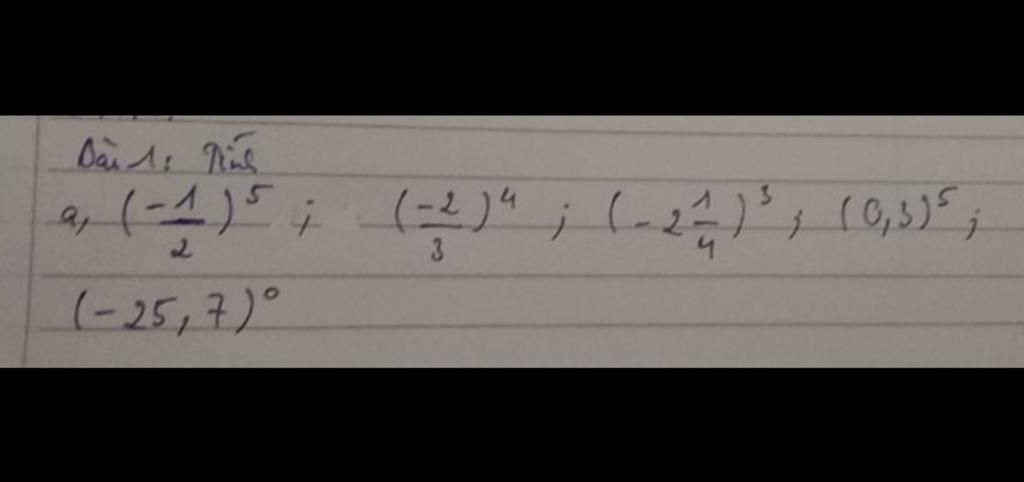 Bài 1: Tính
a, (-1/2)⁵ ; (-2/3)⁴ ; (-2 1/4)³ ; (0,3)⁵ ;
(-25,7)⁰